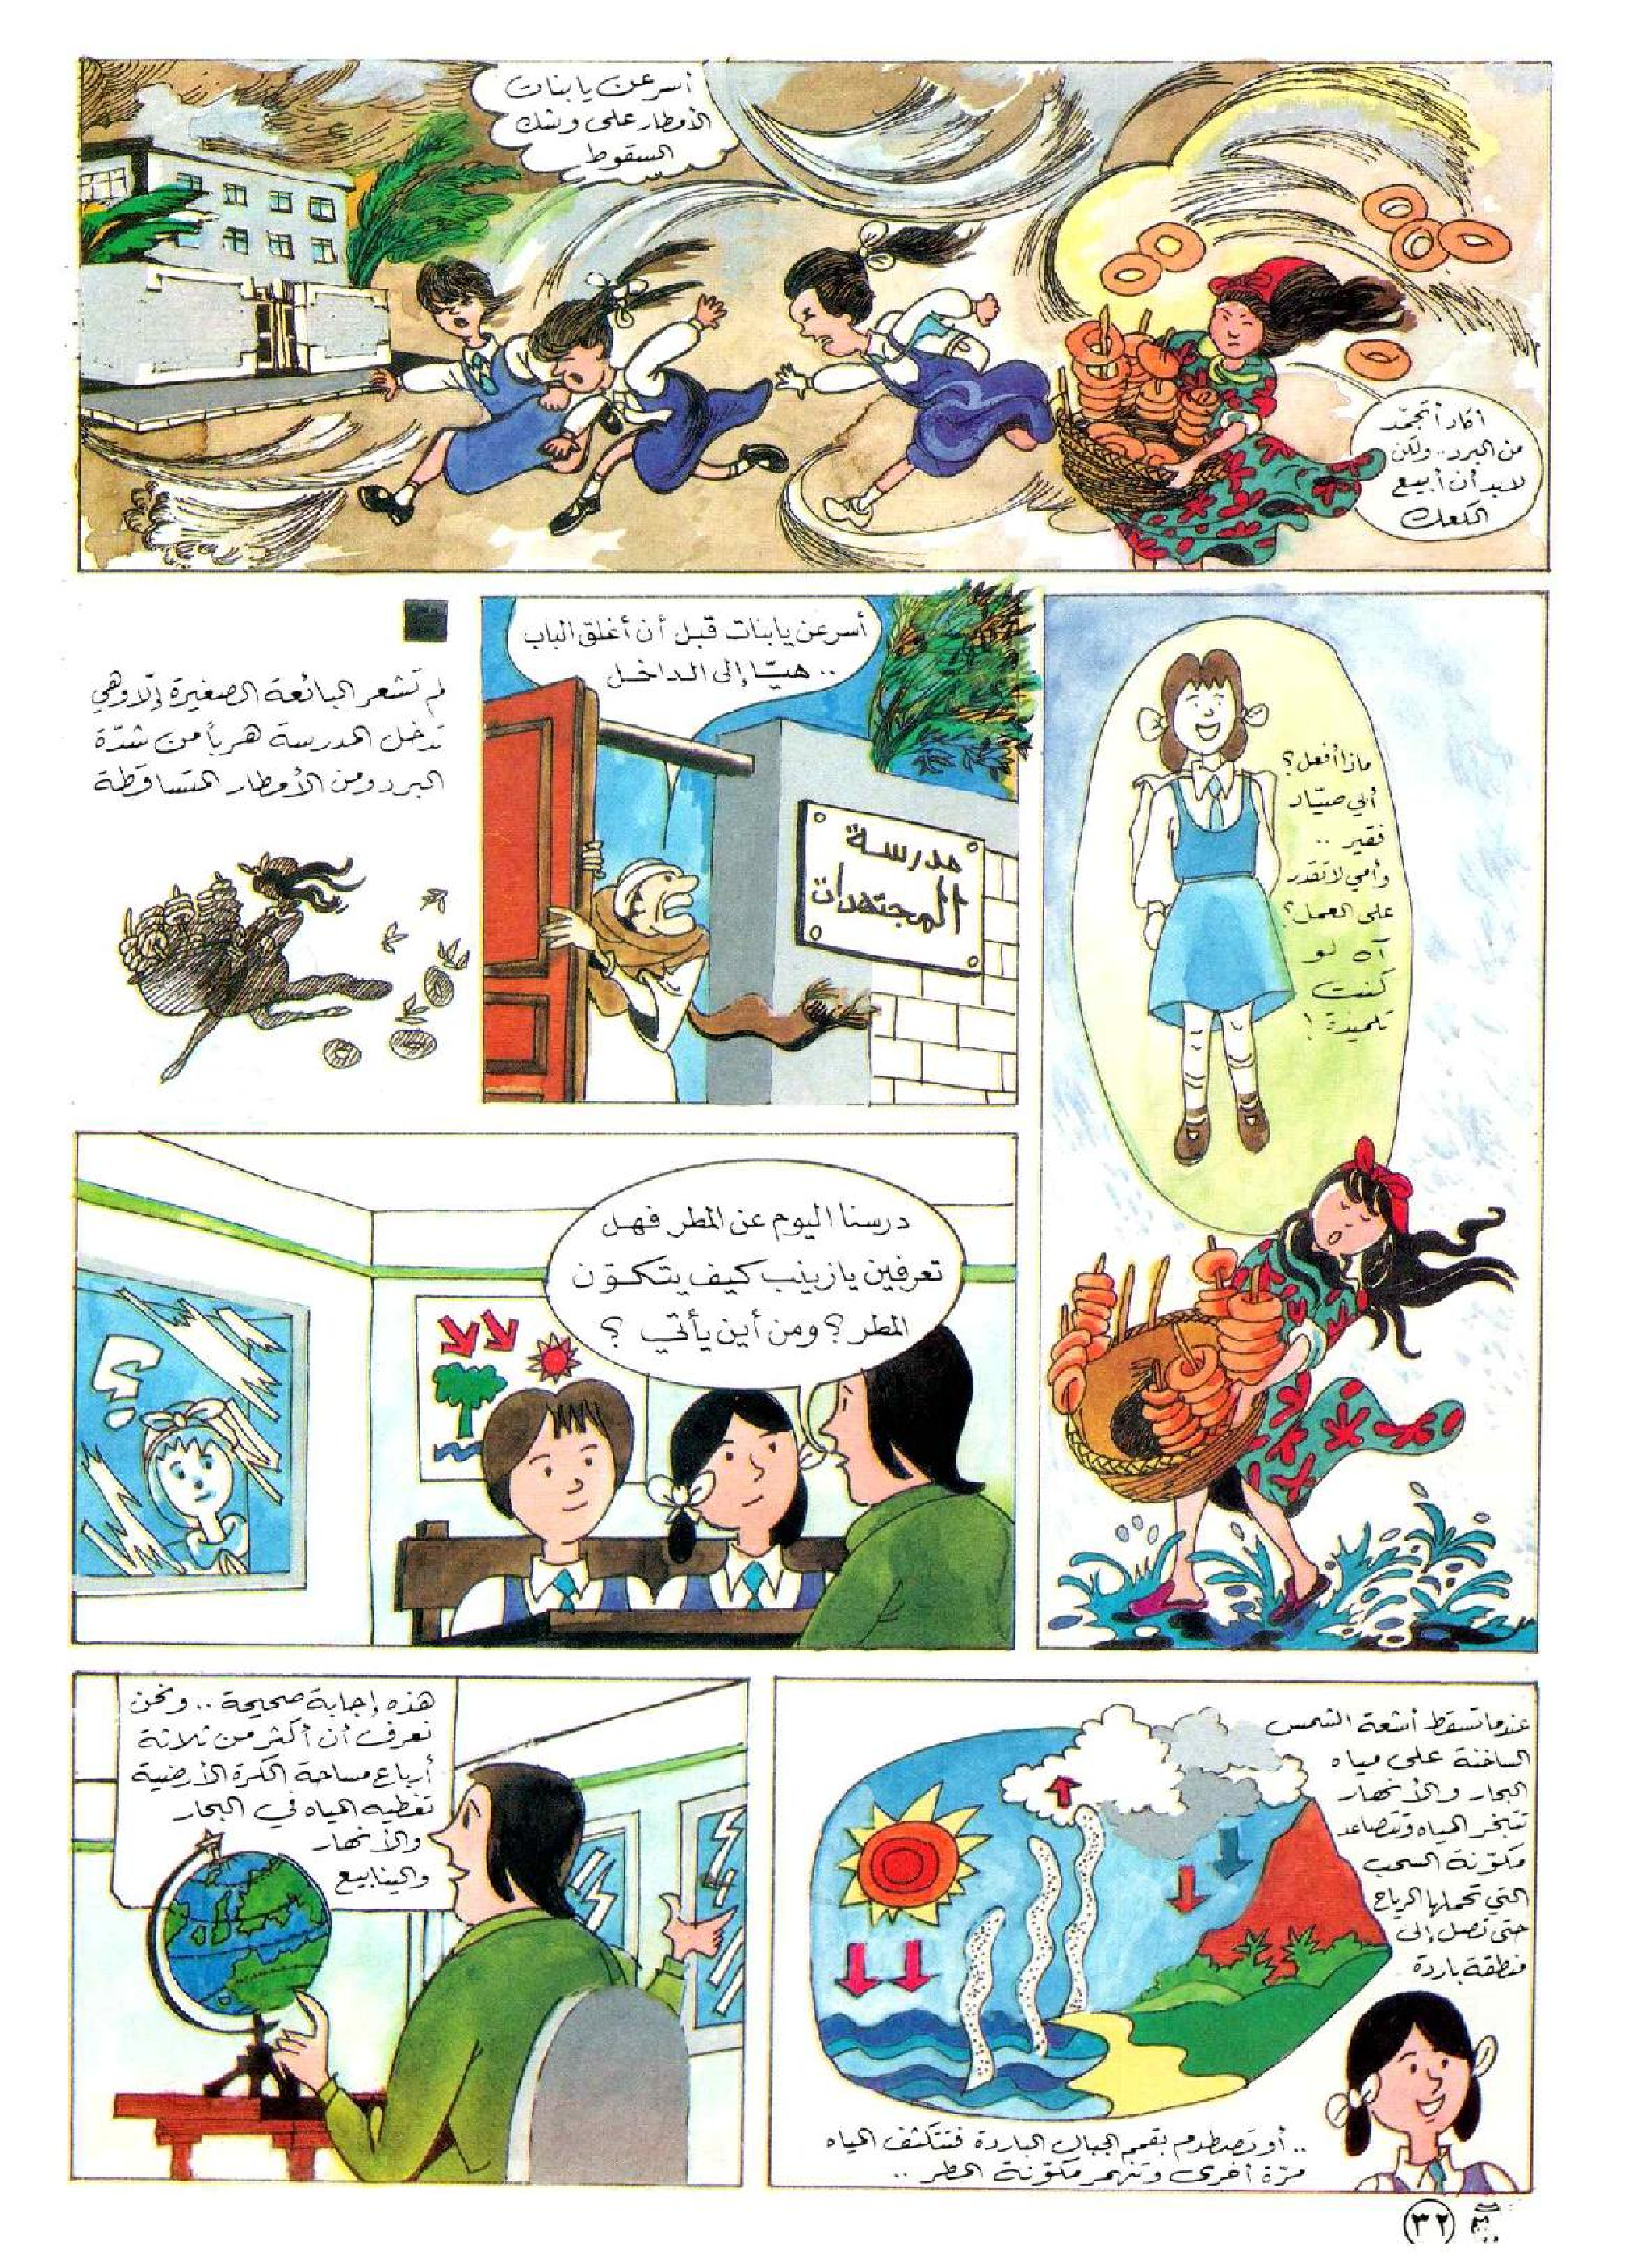 أسرعن يا بنات
الأمطار على وشك
السقوط
أكاد أتجمّد
من البرد.. ولكن
لابد أن أبيع
الكعك
ماذا أفعل؟
أبي صيّاد
فقير ..
وأمي لا تقدر
على العمل؟
آه لو
كنت
تلميذة!
أسرعن يا بنات قبل أن أغلق الباب
.. هيّا إلى الداخل
مدرسة
المجتهدات
لم تشعر البائعة الصغيرة إلّا وهي
تدخل المدرسة هرباً من شدّة
البرد ومن الأمطار المتساقطة
درسنا اليوم عن المطر فهل
تعرفين يا زينب كيف يتكوّن
المطر؟ ومن أين يأتي ؟
؟!
عندما تسقط أشعة الشمس
الساخنة على مياه
البحار والأنهار
تتبخر المياه وتتصاعد
مكوّنة السحب
التي تحملها الرياح
حتى تصل إلى
منطقة باردة
.. أو تصطدم بقمم الجبال الباردة فتتكثف المياه
مرّة أخرى وتنهمر مكوّنة المطر ..
هذه إجابة صحيحة .. ونحن
نعرف أن أكثر من ثلاثة
أرباع مساحة الكرة الأرضية
تغطيه المياه في البحار
والأنهار
والينابيع
٣٢